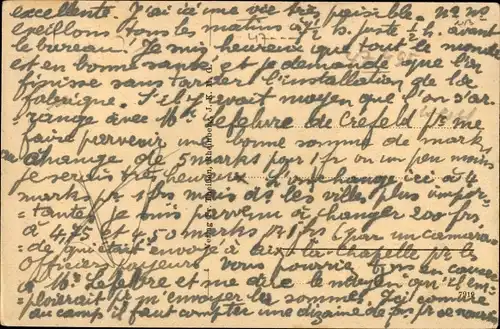 excellente. J'ai ici une vie très paisible. Nous nous
éveillons tous les matins à 7½ h. juste ½ h. avant
le bureau. Je suis heureux que tout le monde
est en bonne santé et je demande que l'on
finisse sans tarder l'installation de la
fabrique. S'il y avait moyen que l'on s'ar-
range avec Mr Lefebvre de Crefeld pr me
faire parvenir une bonne somme de marks
au change de 5 marks pour 1 fr ou un peu moins
je serais très heureux. L'échange ici à 4
marks pr 1 frs mais ds les villes plus impor-
tantes je suis parvenu à changer 200 frs
à 4,75 et 4,50 marks pr 1 frs (par un camara-
de qui était envoyé à Aix-la-Chapelle pr les
Officiers payeurs. Vous pourriez frs en causer
à Mr Lefebvre et me dire le moyen qu'il em-
ploierait pr m'envoyer la somme. Ici comme
au camp il faut compter une dizaine de frs pr se nourrir
7918